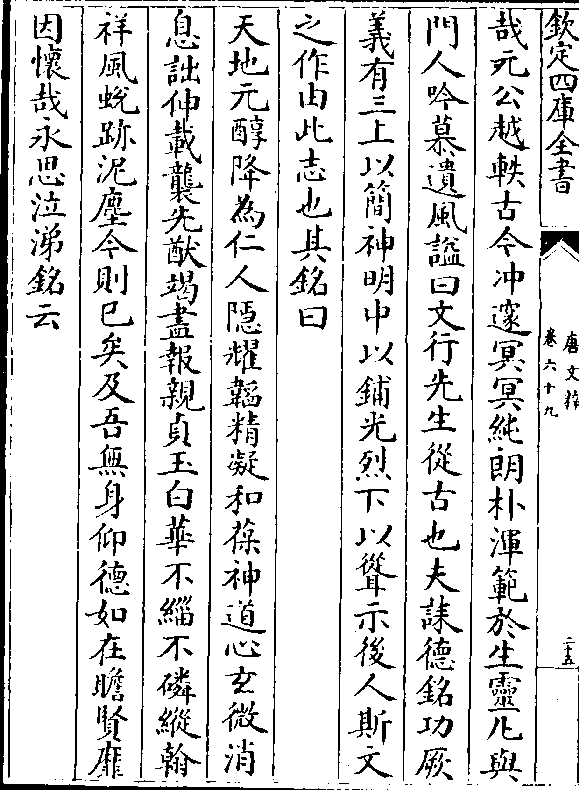 欽定四庫全書
唐文粹
卷六十九
二十五
哉元公越軼古今冲邃冥冥純朗朴渾範於生靈凡與
門人吟慕遺風諡曰文行先生從古也夫誄德銘功厥
義有三上以簡神明中以鋪光烈下以聳示後人斯文
之作由此志也其銘曰
天地元醇降為仁人隱耀韜精凝和葆神道心玄微消
息詘伸載襲先猷竭盡報親貞玉白華不緇不磷縱翰
祥風蛻跡泥塵今則已矣及吾無身仰德如在瞻賢靡
因懷哉永思泣涕銘云